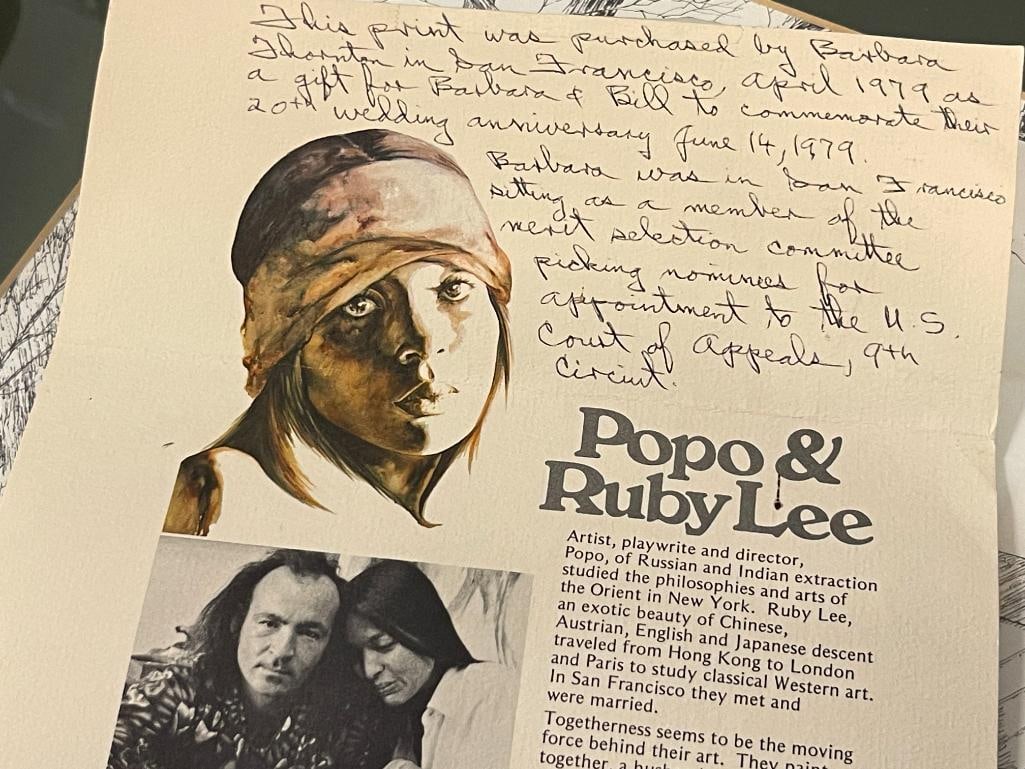 This print was purchased by Barbara
Thornton in San Francisco, April 1979 as
a gift for Barbara & Bill to commemorate their
20th wedding anniversary June 14, 1979.
Barbara was in San Francisco
sitting as a member of the
merit selection committee
picking nominees for
appointment to the U.S.
Court of Appeals, 9th
Circiut.
Popo &
Ruby Lee
Artist, playwrite and director,
Popo, of Russian and Indian extraction
studied the philosophies and arts of
the Orient in New York. Ruby Lee,
an exotic beauty of Chinese,
Austrian, English and Japanese descent
traveled from Hong Kong to London
and Paris to study classical Western art.
In San Francisco they met and
were married.
Togetherness seems to be the moving
force behind their art. They
together, a